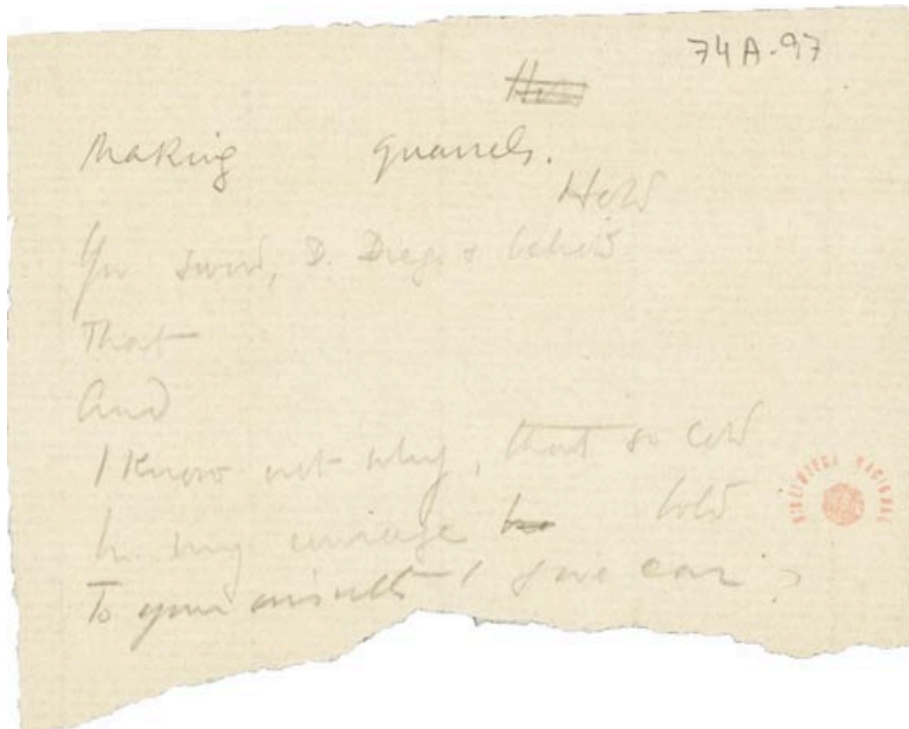 74A-97
Making quarrels.
Hold
Your sword, D. Diego & behold
That
And
I know not why, that so cold
In my courage bold
To your insults I give ear
BIBLIOTECA NACIONAL